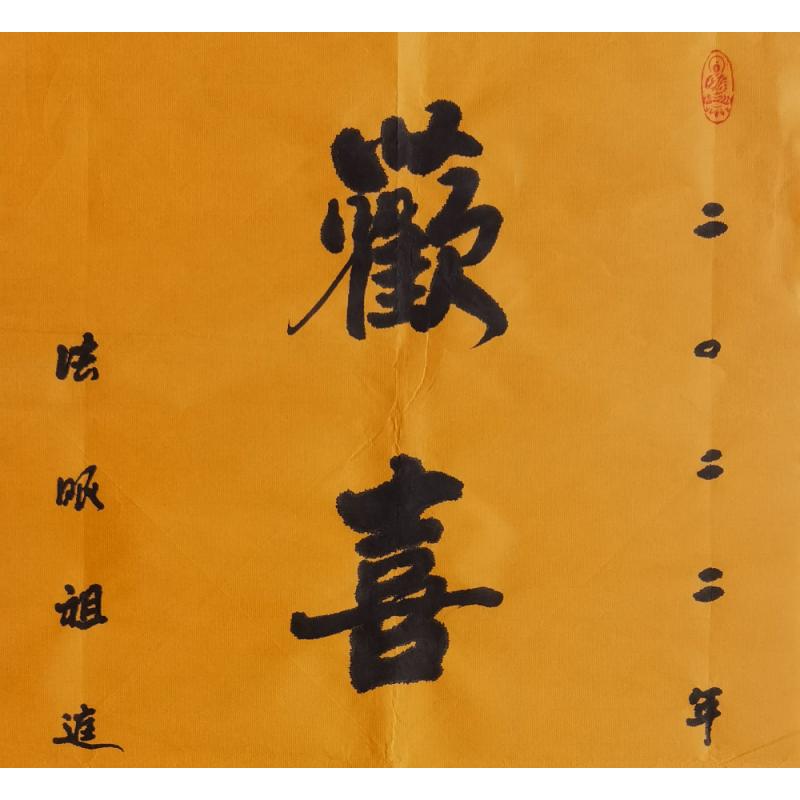 二〇二二年
歡喜
法眼祖進